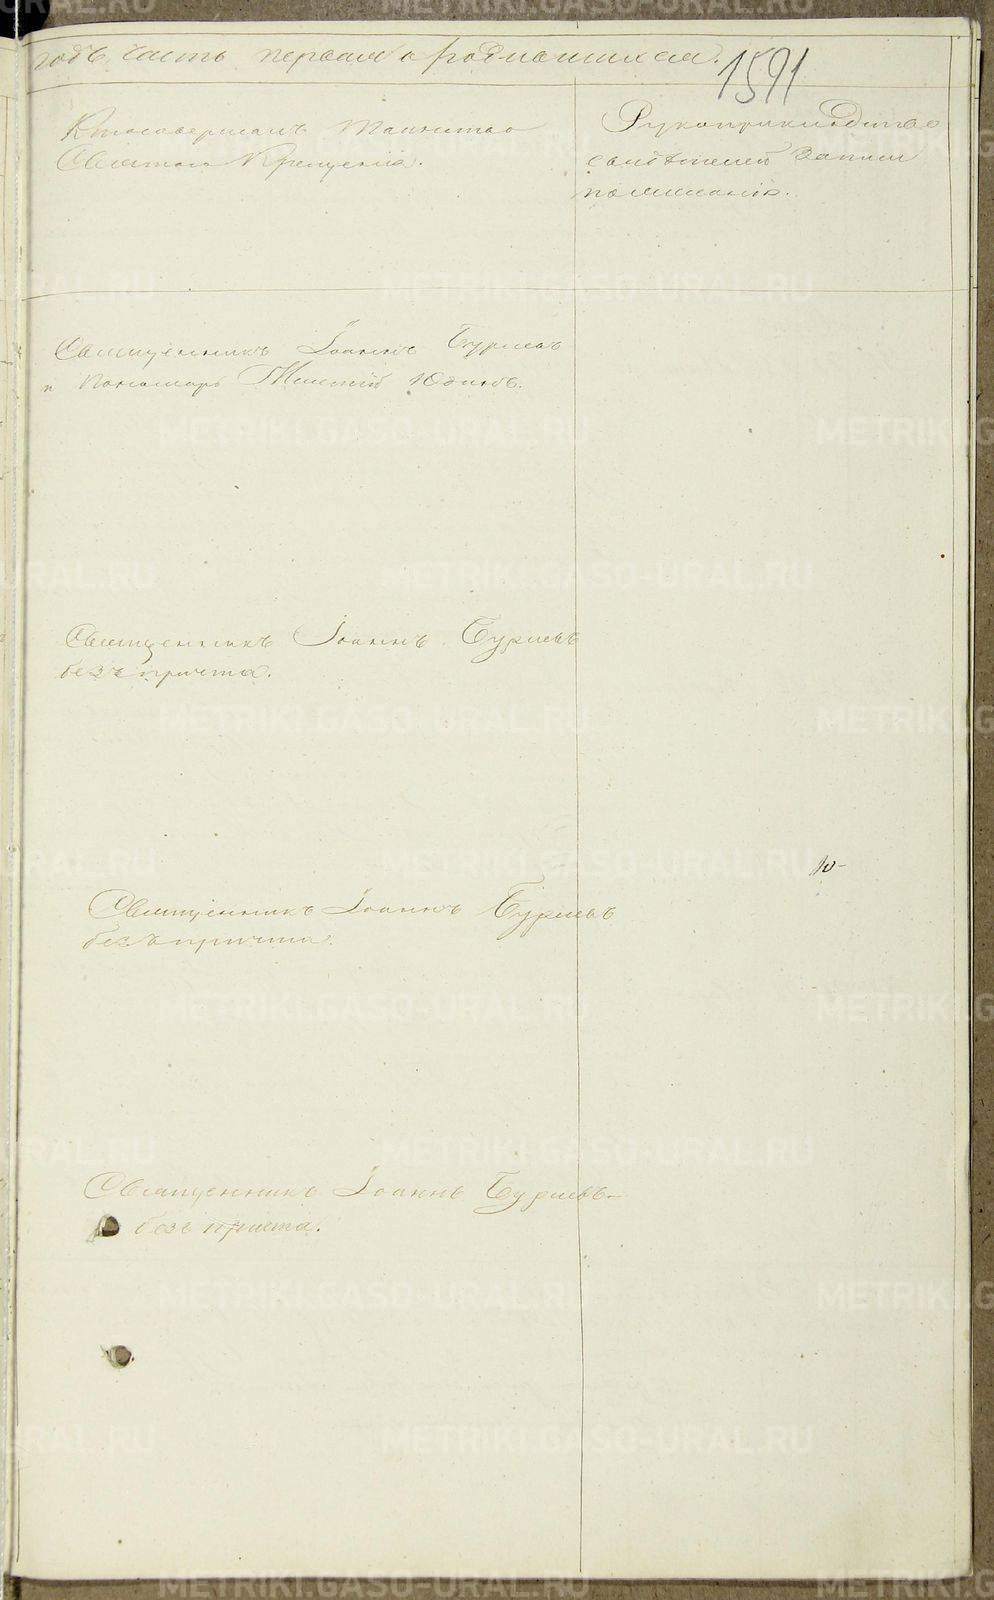 годъ, часть первая о родившихся.
1591
Кто совершалъ таинство
Святаго Крещенія.
Рукоприкладство
свидѣтелей записи
по желанію.
Священникъ Іоаннъ Буриевъ
и Пономарь Юдинъ.
Священникъ Іоаннъ Буриевъ
безъ причта.
Священникъ Іоаннъ Буриевъ
безъ причта.
Священникъ Іоаннъ Буриевъ
безъ причта.
METRIKI.GASO-URAL.RU